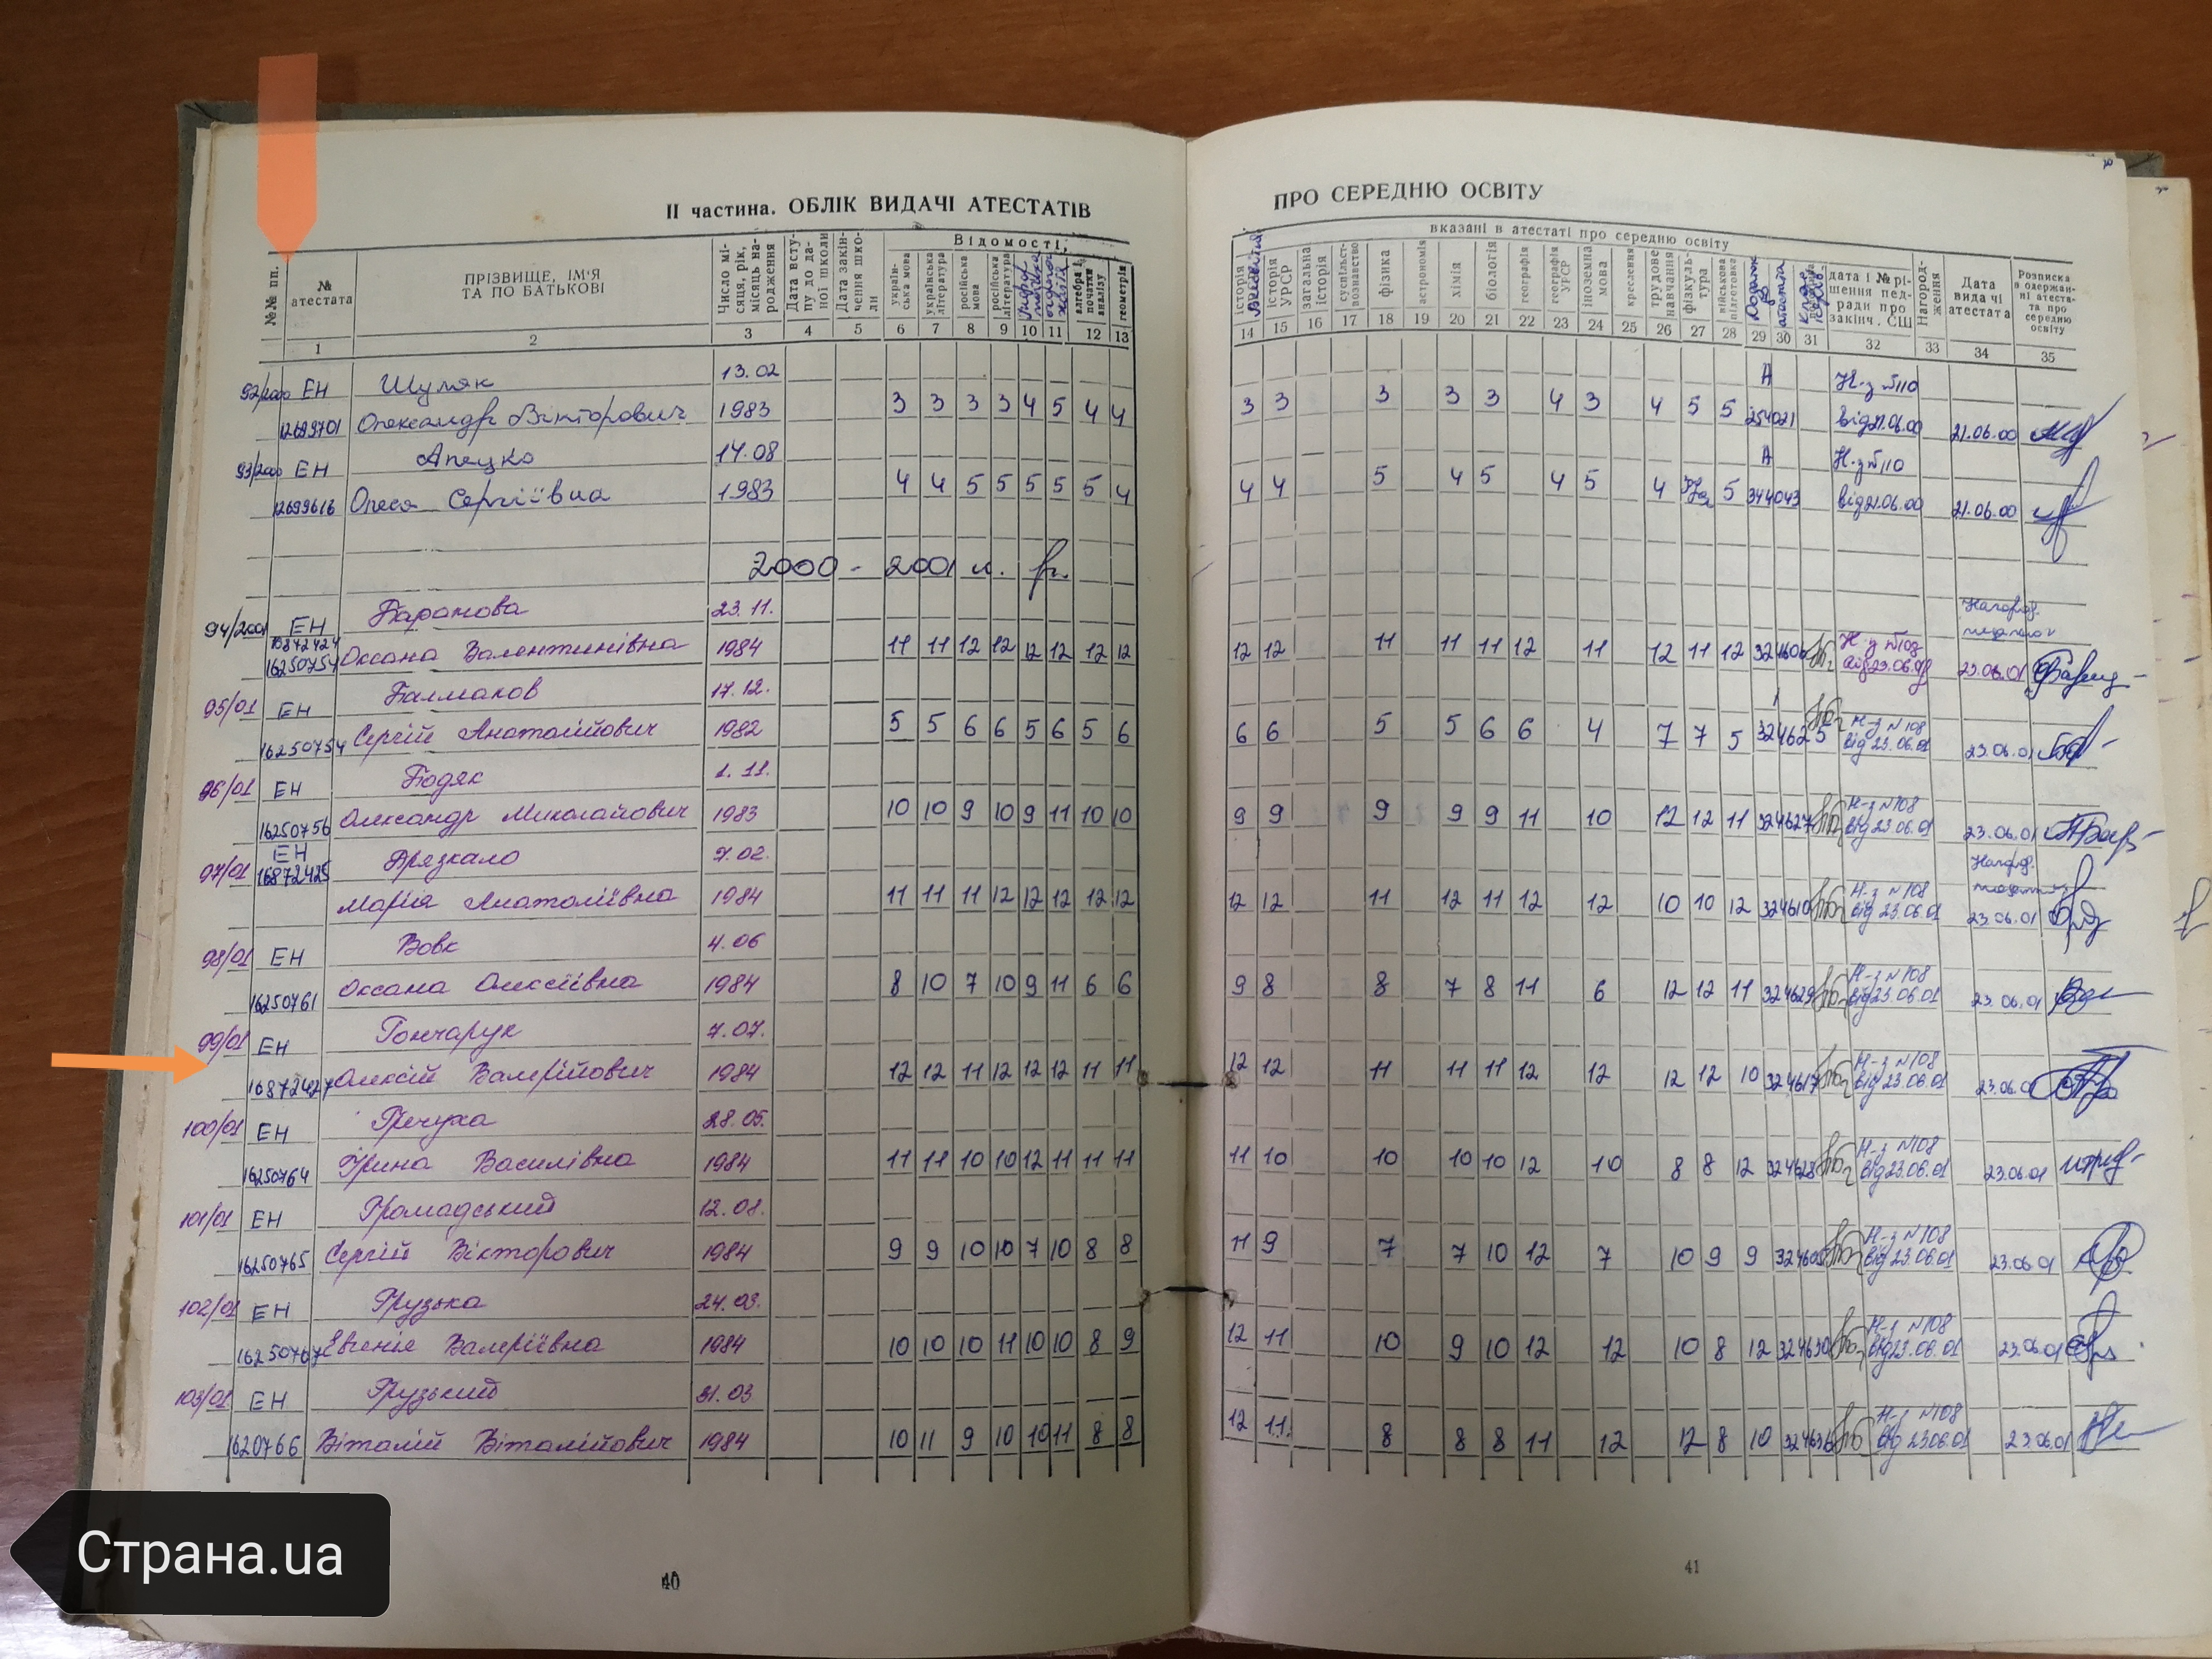 ІІ частина. ОБЛІК ВИДАЧІ АТЕСТАТІВ
ПРО СЕРЕДНЮ ОСВІТУ
№№ пп.
№ атестата
ПРІЗВИЩЕ, ІМ'Я ТА ПО БАТЬКОВІ
Число місяця, рік, місяць народження
Дата вступу до даної школи
Дата закінчення школи
Відомості,
українська мова
українська література
російська мова
російська література
алгебра і початки аналізу
геометрія
вказані в атестаті про середню освіту
історія
історія УРСР
загальна історія
суспільствознавство
фізика
астрономія
хімія
біологія
географія
географія УРСР
іноземна мова
креслення
трудове навчання
фізкультура
військова підготовка
дата і № рішення педради про закінч. СШ
Нагородження
Дата видачі атестата
Розписка в одержанні атестата про середню освіту
1 2 3 4 5 6 7 8 9 10 11 12 13
14 15 16 17 18 19 20 21 22 23 24 25 26 27 28 29 30 31 32 33 34 35
92/2000 ЕН Шумяк 13.02 А Н-з №110
12699701 Олександр Вікторович 1983 3 3 3 3 4 5 4 4 3 3 3 3 3 4 3 4 5 5 254021 від 21.06.00 21.06.00
93/2000 ЕН Апецко 14.08 А Н-з №110
12699616 Олеся Сергіївна 1983 4 4 5 5 5 5 5 4 4 4 5 4 5 4 5 4 5 344043 від 21.06.00 21.06.00
2000 - 2001 н. р.
94/2001 ЕН Баранова 23.11.
16250754 Оксана Валентинівна 1984 11 11 12 12 12 12 12 12 12 12 11 11 11 12 11 12 11 12 Н-з №108 23.06.01
95/01 ЕН Балмаков 17.12.
16250754 Сергій Анатолійович 1982 5 5 6 6 5 6 5 6 6 6 5 5 6 6 4 7 7 5 324625 Н-з №108 від 23.06.01 23.06.01
96/01 ЕН Бодяк 1.11.
16250756 Олександр Миколайович 1983 10 10 9 10 9 11 10 10 9 9 9 9 9 11 10 12 12 11 324627 Н-з №108 від 23.06.01 23.06.01
97/01 ЕН 16872425 Брязкало 7.02.
Марія Анатоліївна 1984 11 11 11 12 12 12 12 12 12 12 11 12 11 12 12 10 10 12 324610 Н-з №108 від 23.06.01 23.06.01
98/01 ЕН Вовк 4.06
16250761 Оксана Олексіївна 1984 8 10 7 10 9 11 6 6 9 8 8 7 8 11 6 12 12 11 324629 Н-з №108 від 23.06.01 23.06.01
99/01 ЕН Гончарук 7.07.
16872427 Олексій Валерійович 1984 12 12 11 12 12 12 11 11 12 12 11 11 11 12 12 12 12 10 324617 Н-з №108 від 23.06.01 23.06.01
100/01 ЕН Гречуха 28.05.
16250764 Ірина Василівна 1984 11 11 10 10 12 11 11 11 11 10 10 10 10 12 10 8 8 12 324623 Н-з №108 від 23.06.01 23.06.01
101/01 ЕН Громадський 12.08.
16250765 Сергій Вікторович 1984 9 9 10 10 7 10 8 8 11 9 7 7 10 12 7 10 9 9 324605 Н-з №108 від 23.06.01 23.06.01
102/01 ЕН Грузька 24.03.
16250767 Евгенія Валеріївна 1984 10 10 10 11 10 10 8 9 12 11 10 9 10 12 12 10 8 12 324630 Н-з №108 від 23.06.01 23.06.01
103/01 ЕН Грузький 31.03
1620766 Віталій Віталійович 1984 10 11 9 10 10 11 8 8 12 11. 8 8 8 11 12 12 8 10 324636 Н-з №108 від 23.06.01 23.06.01
40
41
Страна.ua